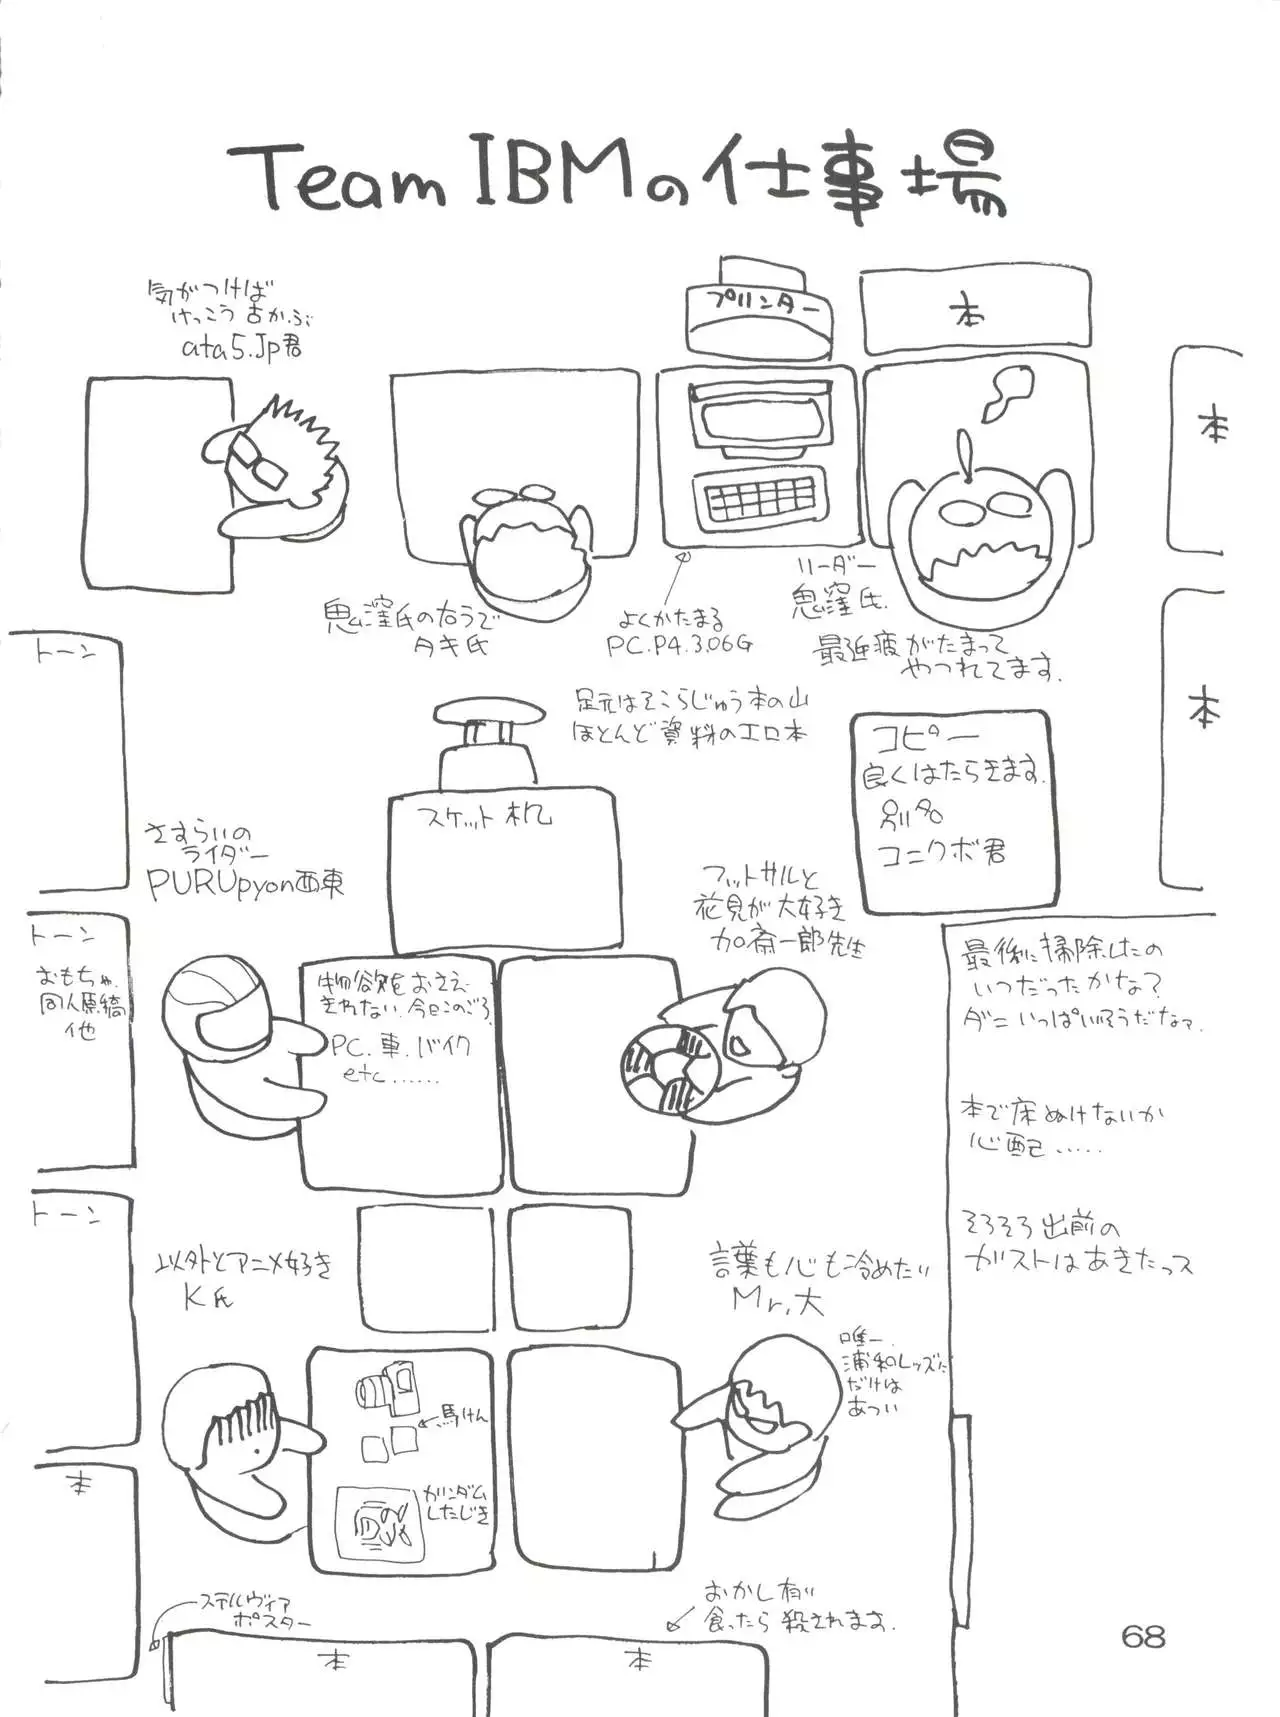 Team IBMの仕事場
気がつけば
けっこう古かぶ
ata5.Jp君
プリンター
本
本
鬼窪氏の右うで
タキ氏
よくかたまる
PC.P4.3.06G
リーダー
鬼窪氏.
最近疲がたまって
やつれてます.
トーン
足元はそこらじゅう本の山
ほとんど資料のエロ本
本
コピー
良くはたらきます.
別名
コニクボ君
スケット机
さすらいの
ライダー
PURUpyon西東
フットサルと
花見が大好き
加斎一郎先生
トーン
おもちゃ.
同人原稿
他
物欲をおさえ
きれない.今日このごろ.
PC.車.バイク
etc......
最後に掃除したの
いつだったかな？
ダニいっぱいいそうだなァ.
本で床ぬけないか
心配.....
そろそろ出前の
ガストはあきたっス
トーン
以外とアニメ好き
K氏
言葉も心も冷めたい
Mr.大
唯一.
浦和レッズに
だけは
あつい
馬けん
ガンダム
したじき
本
ステルヴィア
ポスター
おかし有り
食ったら殺されます.
本
本
68